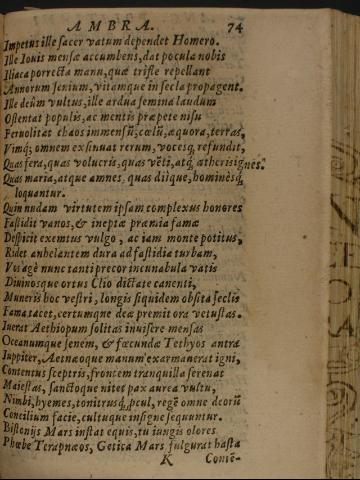 AMBRA. 74
Impetus ille sacer vatum dependet Homero.
Ille Iouis mensæ accumbens, dat pocula nobis
Iliaca porrecta manu, quæ triste repellant
Annorum senium, vitamque in secla propagent.
Ille deûm vultus, ille ardua semina laudum
Ostentat populis, ac mentis præpete nisu
Peruolitat chaos immensũ, cœlũ, æquora, terras,
Vimq́; omnem exsinuat rerum, vocesq́; refundit,
Quas fera, quas volucris, quas vẽti, atq́; ætherisignes,
Quas maria, atque amnes, quas diique, hominesq́;
loquantur.
Quin nudam virtutem ipsam complexus honores
Fastidit vanos, & ineptæ præmia famæ
Despicit exemtus vulgo, ac iam monte potitus,
Ridet anhelantem dura ad fastidia turbam,
Vos agè nunc tanti precor incunabula vatis
Diuinosque ortus Clio dictate canenti,
Muneris hoc vestri, longis siquidem obsita seclis
Fama tacet, certumque deæ premit ora vetustas.
Iuerat Aethiopum solitas inuisere mensas
Oceanumque senem, & fœcundæ Tethyos antra
Iuppiter, Aetnæoque manum exarmauerat igni,
Contentus sceptris, frontem tranquilla serenat
Maiestas, sanctoque nitet pax aurea vultu,
Nimbi, hyemes, tonitrusq́; pcul, regẽ omne deorũ
Concilium facie, cultuque insigne sequuntur.
Bistonijs Mars instat equis, tu iungis olores
Phœbe Terapnæos, Getica Mars fulgurat hasta
K Contẽ-